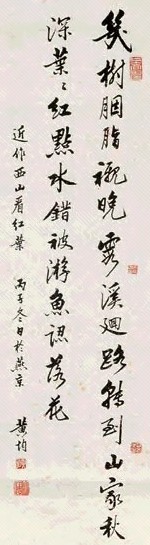 幾樹胭脂襯晚霞溪迴路轉到山家秋
深葉葉紅點水錯被游魚認落花
近作西山看紅葉 丙子冬日於燕京 黄均